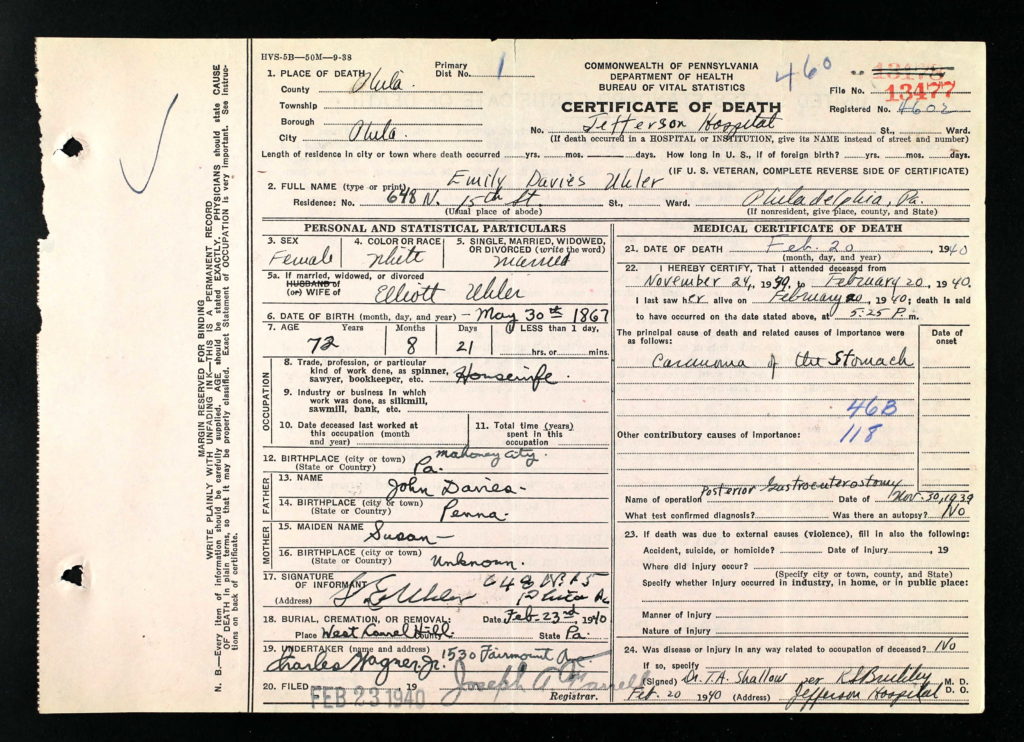 HVS-5B—50M—9-38
1. PLACE OF DEATH
County Phila.
Township
Borough
City Phila.
Primary Dist No. 1
COMMONWEALTH OF PENNSYLVANIA
DEPARTMENT OF HEALTH
BUREAU OF VITAL STATISTICS
CERTIFICATE OF DEATH
460
File No. 13477
Registered No. 4602
No. Jefferson Hospital St., Ward.
(If death occurred in a HOSPITAL or INSTITUTION, give its NAME instead of street and number)
Length of residence in city or town where death occurred yrs. mos. days. How long in U. S., if of foreign birth? yrs. mos. days.
(IF U. S. VETERAN, COMPLETE REVERSE SIDE OF CERTIFICATE)
2. FULL NAME (type or print) Emily Davies Uhler
Residence: No. 648 N. 15th St. St., Ward. Philadelphia, Pa.
(Usual place of abode) (If nonresident, give place, county, and State)
PERSONAL AND STATISTICAL PARTICULARS
3. SEX Female
4. COLOR OR RACE White
5. SINGLE, MARRIED, WIDOWED, OR DIVORCED (write the word) Married
5a. If married, widowed, or divorced
HUSBAND of
(or) WIFE of Elliott Uhler
6. DATE OF BIRTH (month, day, and year) May 30th 1867
7. AGE Years Months Days If LESS than 1 day,
72 8 21 hrs. or mins.
OCCUPATION
8. Trade, profession, or particular kind of work done, as spinner, sawyer, bookkeeper, etc. Housewife.
9. Industry or business in which work was done, as silkmill, sawmill, bank, etc.
10. Date deceased last worked at this occupation (month and year)
11. Total time (years) spent in this occupation
12. BIRTHPLACE (city or town) Mahoney City.
(State or Country) Pa.
FATHER
13. NAME John Davies
14. BIRTHPLACE (city or town)
(State or Country) Penna.
MOTHER
15. MAIDEN NAME Susan
16. BIRTHPLACE (city or town)
(State or Country) Unknown.
17. SIGNATURE OF INFORMANT Uhler
(Address) 648 N 15
18. BURIAL, CREMATION, OR REMOVAL: Date Feb. 23rd, 1940
Place West Laurel Hill County State Pa.
19. UNDERTAKER (name and address) 1530 Fairmount Ave
Charles Wagner, Jr.
20. FILED FEB 23 1940 19 Joseph A Farrell
Registrar.
MEDICAL CERTIFICATE OF DEATH
21. DATE OF DEATH Feb. 20 1940
(month, day, and year)
22. I HEREBY CERTIFY, That I attended deceased from
November 24, 1939, to February 20, 1940.
I last saw her alive on February 20, 1940; death is said
to have occurred on the date stated above, at 5:25 P. m.
The principal cause of death and related causes of importance were as follows:
Date of onset
Carcinoma of the Stomach
46B
118
Other contributory causes of importance:
Name of operation Posterior Gastroenterostomy Date of Nov. 30, 1939
What test confirmed diagnosis? Was there an autopsy? No
23. If death was due to external causes (violence), fill in also the following:
Accident, suicide, or homicide? Date of injury, 19
Where did injury occur?
(Specify city or town, county, and State)
Specify whether injury occurred in industry, in home, or in public place:
Manner of injury
Nature of injury
24. Was disease or injury in any way related to occupation of deceased? No
If so, specify
(Signed) Dr. T.A. Shallow per M. D.
D. O.
Feb. 20 1940 (Address) Jefferson Hospital
MARGIN RESERVED FOR BINDING
WRITE PLAINLY WITH UNFADING INK—THIS IS A PERMANENT RECORD
N. B.—Every item of information should be carefully supplied. AGE should be stated EXACTLY. PHYSICIANS should state CAUSE
OF DEATH in plain terms, so that it may be properly classified. Exact Statement of OCCUPATION is very important. See instruc-
tions on back of certificate.